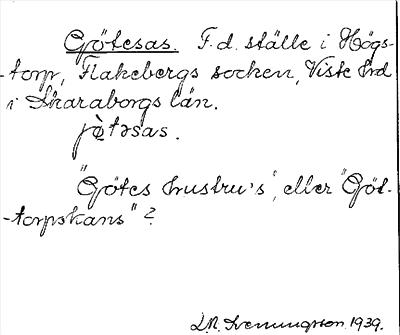 Götesas. F.d. ställe i Högs-
-torp, Flakebergs socken, Viste hrd
i Skaraborgs län.
jö̀təsas.
"Götes hustru's", eller "Göt-
-torpskans"?
D.N. Svenungsson 1939.